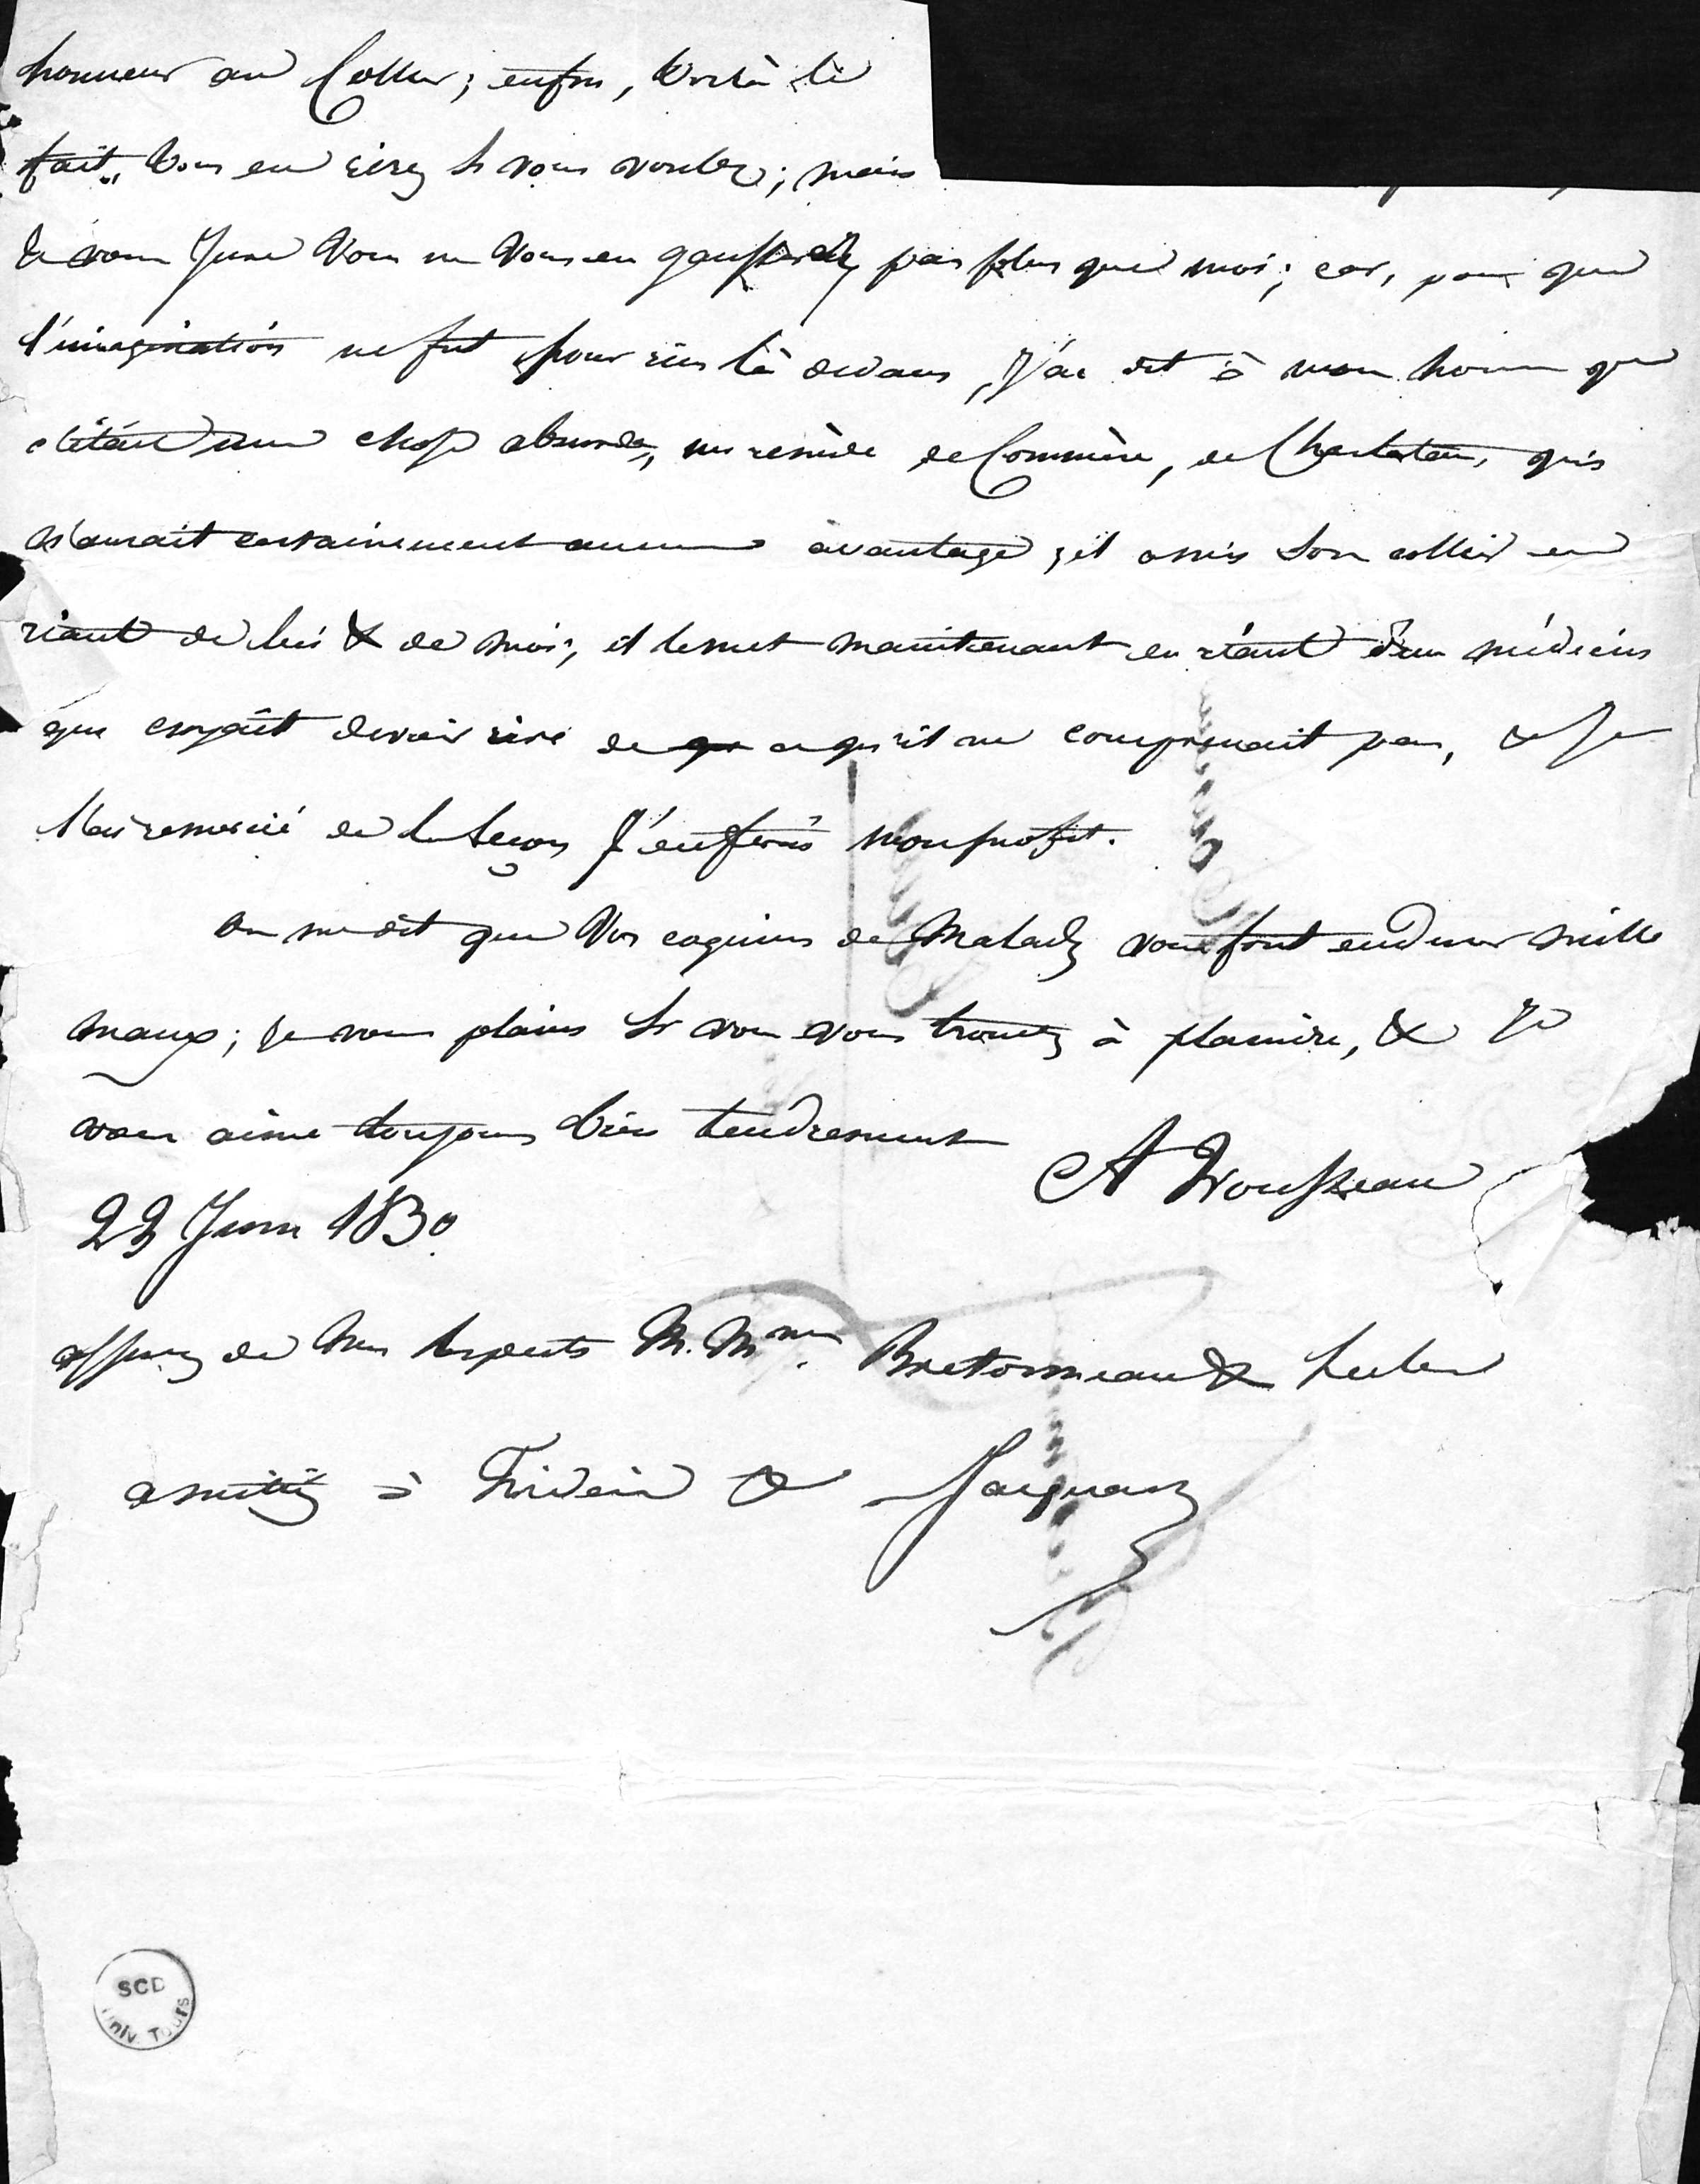 honneur au Collier ; enfin, voilà le
fait, Vous en rirez si vous voulez ; mais
je vous jure Vous ne Vous en gausserez pas plus que moi ; car, pour que
l'imagination ne fut pour rien là dedans, j'ai dit à mon homme que
c'était une chose absurde, un remède de Commère, de Charlatan, qui
n'aurait certainement aucun avantage ; il a mis son collier en
riant de lui & de moi, il le met maintenant en riant d'un médecin
qui croyait devoir rire de ce qu'il ne comprenait pas, & je
l'ai remercié de la leçon J'en ferai mon profit.
On me dit que Vos coquins de Malades vous font endurer mille
maux ; je vous plains si vous vous trouvez à plaindre, & je
vous aime toujours bien tendrement
A Trousseau
22 Juin 1830.
assurez de mes respects M. Mme. Bretonneau &
amitiés à &
SCD
Univ. Tours